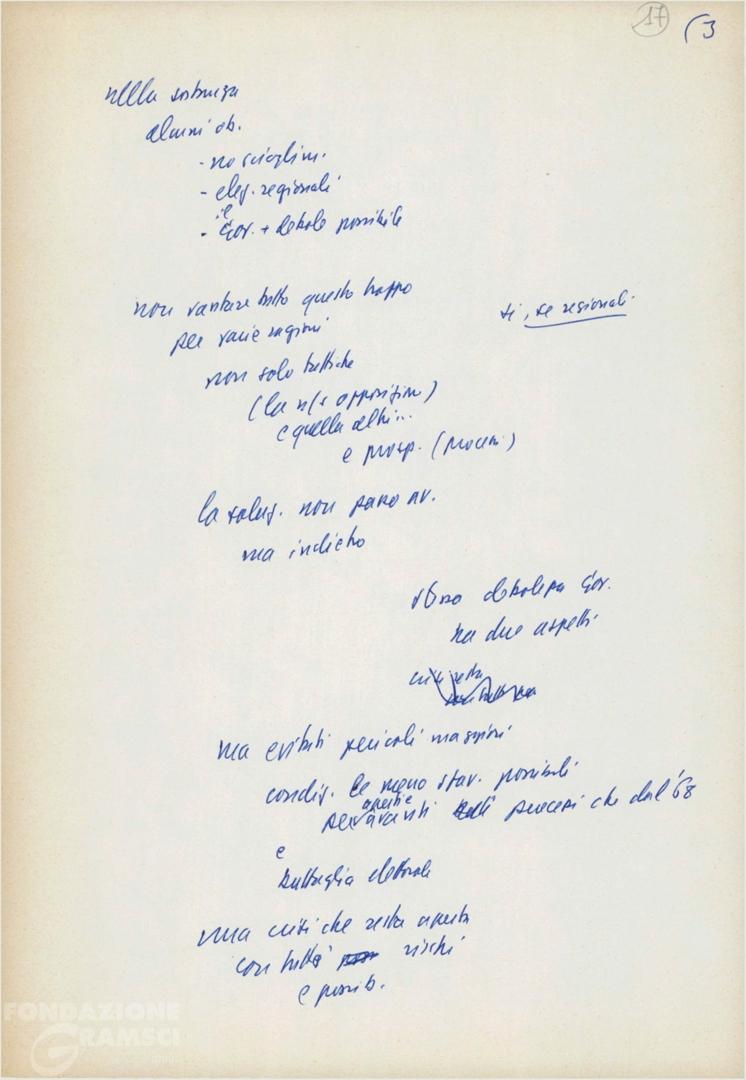 17 (3
nella sostanza
alcuni ob.
- no scioglim.
- elez. regionali
- il gov. + debole possibile
non vantare tutto questo troppo
per varie ragioni
si, se regionali.
non solo tattiche
(la n/s opposizione)
e quella altri...
e prosp. (processi)
la soluz. non passo av.
ma indietro
debolezza gov.
ha due aspetti
crisi resta
ma evitati pericoli maggiori
condiz. le meno sfav. possibili
per avanti processi che dal '68
aperti
e
battaglia elettorale
ma crisi che resta aperta
con tutti rischi
e possib.
FONDAZIONE
GRAMSCI